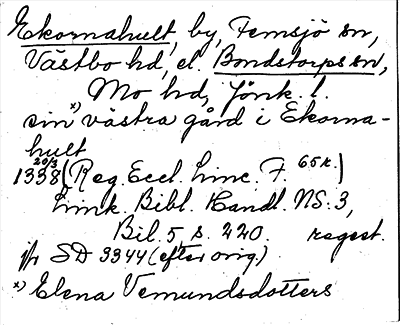 Ekornahult, by, Femsjö sn,
Västbo hd, el. Bondstorps sn,
Mo hd, Jönk. l.
sin x) västra gård i Ekorna-
hult
20/3
1338 (Reg. Eccl. Linc. F. 65 r.)
Link. Bibl. Handl. NS. 3,
Bil. 5 s. 220. regest.
jfr SD 3344 (efter orig.)
x) Elena Vemundsdotters